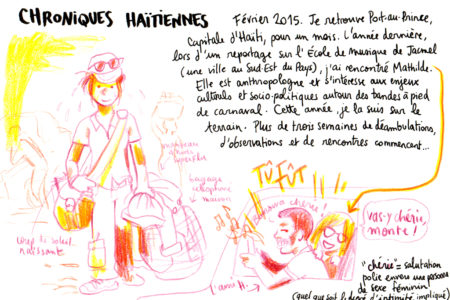 CHRONIQUES HAÏTIENNES
Février 2015. Je retrouve Port-au-Prince,
Capitale d'Haïti, pour un mois. L'année dernière,
lors d'un reportage sur l'École de musique de Jacmel
(une ville au Sud-Est du Pays), j'ai rencontré Mathilde.
Elle est anthropologue et s'intéresse aux enjeux
culturels et socio-politiques autour des bandes à pied
de carnaval. Cette année, je la suis sur le
terrain. Plus de trois semaines de déambulations,
d'observations et de rencontres commencent...
TÛT
TÛT
bagage
maison
chérie!
vas-y chérie,
monte!
soleil
naissante
"chérie" = salutation
polie envers une personne
de sexe féminin
(quel que soit le degré d'intimité impliqué)